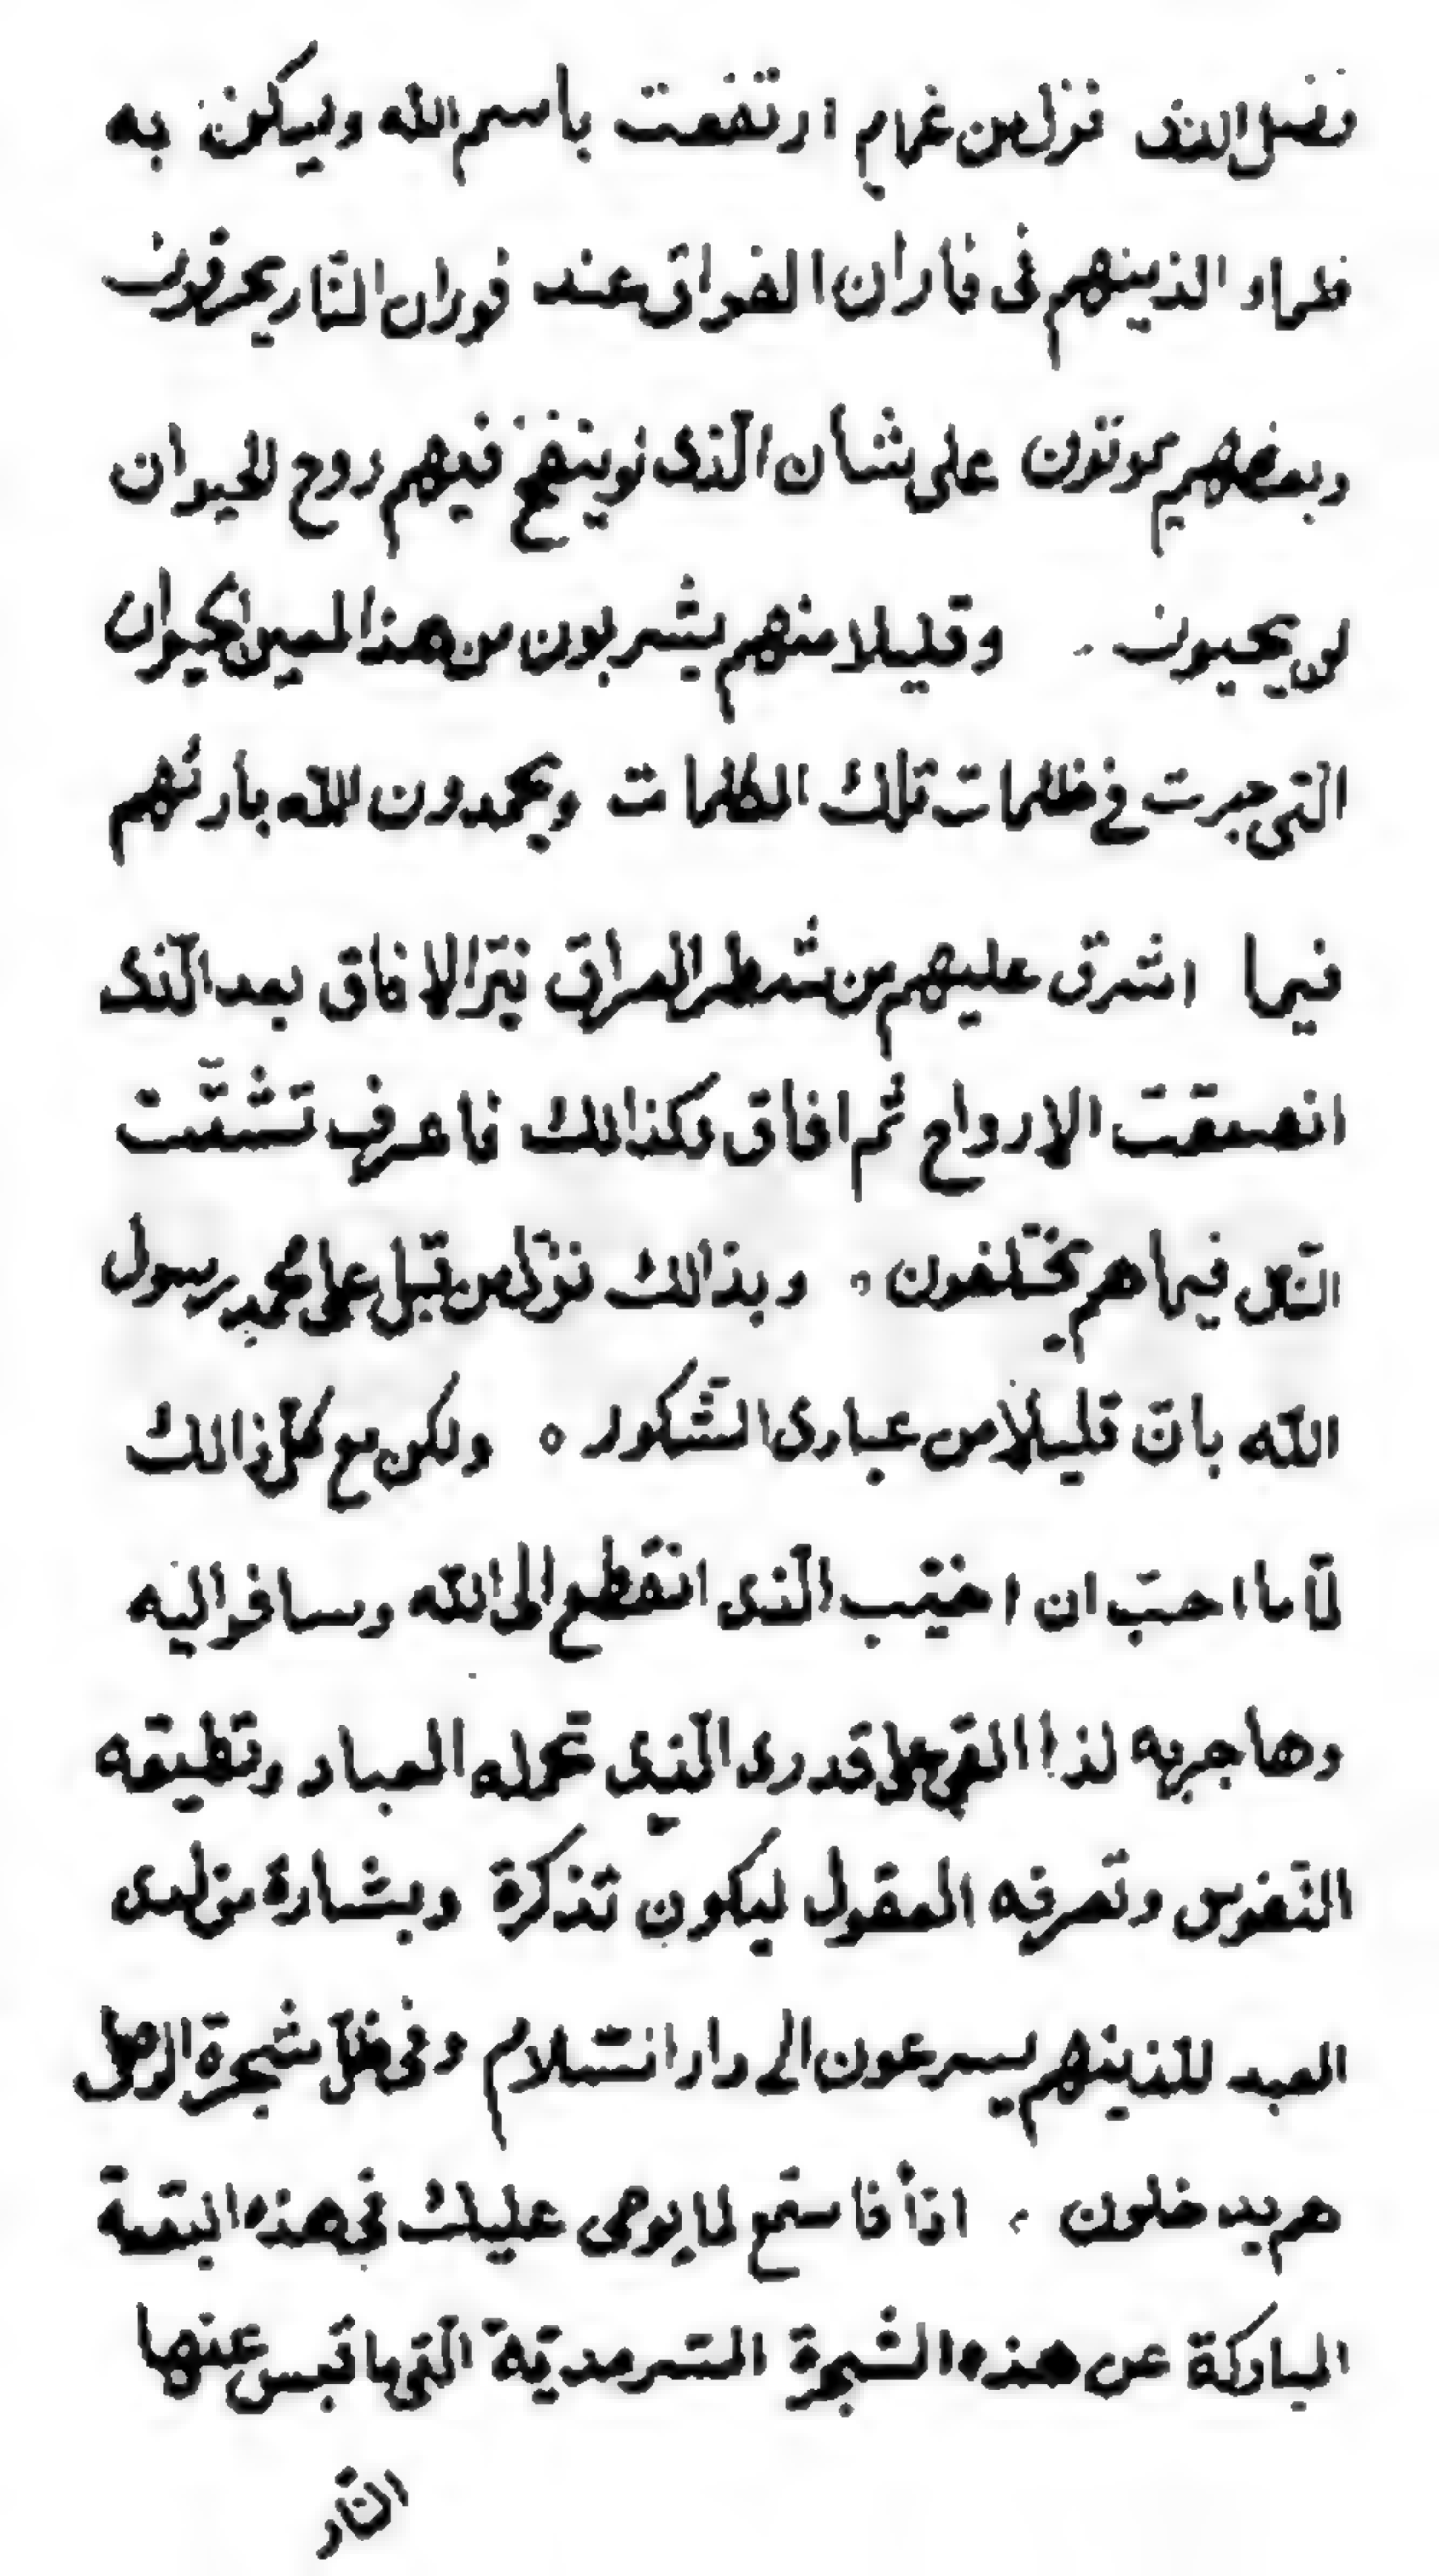 فضل الذى نزل من غمام ارتفعت باسم الله وليسكن به
ظماء الذينهم فى فاران الفراق عند فوران النّار يحرقون
وبعضهم يموتون على شأن الّذى لو ينفخ فيهم روح الحيوان
لن يحيون . وقليلا منهم يشربون من هذا لعين الحيوان
الّتى جرت فى ظلمات تلك الكلمات ويحمدون اللّه بارئهم
فيما اشرق عليهم من شطر العراق نيّر الافاق بعد الّذى
انصعقت الارواح ثم افاق وكذالك فاعرف تشتّت
النّاس فيما هم يختلفون . وبذالك نزّل من قبل على محمد رسول
اللّه بانّ قليلًا من عبادى الشّكور ٥ ولكن مع كلّ ذالك
لمّا ما احبّ ان اخيّب الّذى انقطع الى اللّه وسافر اليه
وهاجر به لذا القى على قدر الّذى تحمله العباد وتطيقه
النّفوس وتعرفه العقول ليكون تذكرة وبشارة من لدى
العبد للّذينهم يسرعون الى دار السّلام وفى ظلّ شجرة الوصل
هم يدخلون . اذًا فاستمع لما يوحى عليك فى هذه البقعة
المباركة عن هذه الشجرة السّرمديّة الّتى ما قبس عنها
النّار